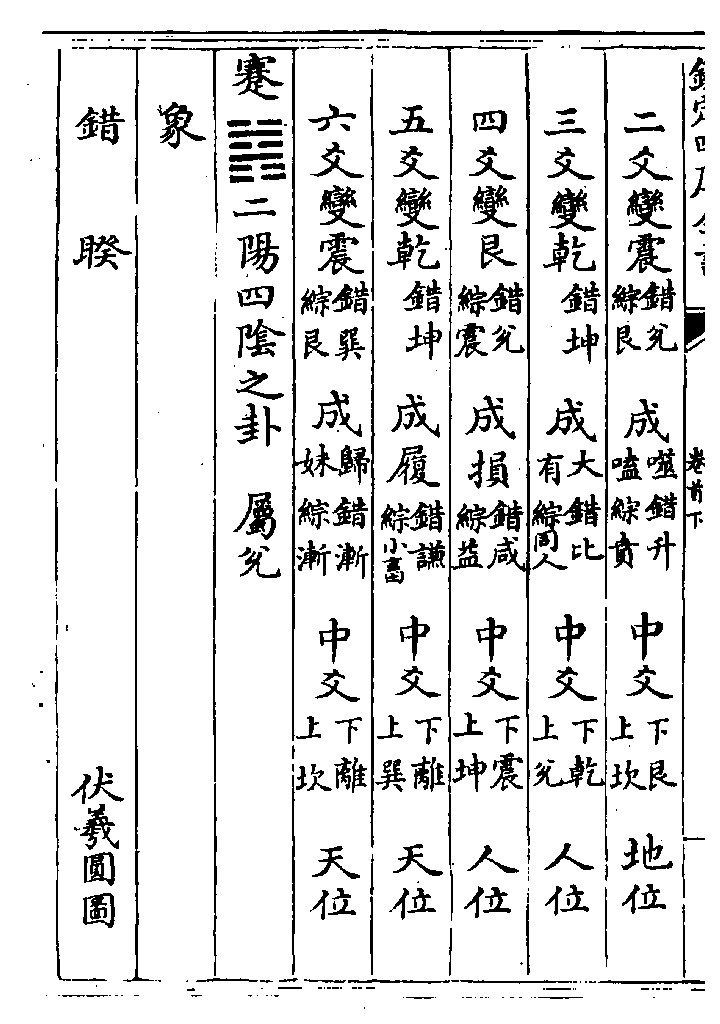 欽定四庫全書
卷首下
二爻變震錯兌綜艮 成噬嗑錯升綜賁 中爻下艮上坎 地位
三爻變乾錯坤 成大有錯比綜同人 中爻下乾上兌 人位
四爻變艮錯兌綜震 成損錯咸綜益 中爻下震上坤 人位
五爻變乾錯坤 成履錯謙綜小畜 中爻下離上巽 天位
六爻變震錯巽綜艮 成歸妹錯漸綜漸 中爻下離上坎 天位
蹇䷦二陽四陰之卦 屬兌
象
錯睽 伏羲圓圖